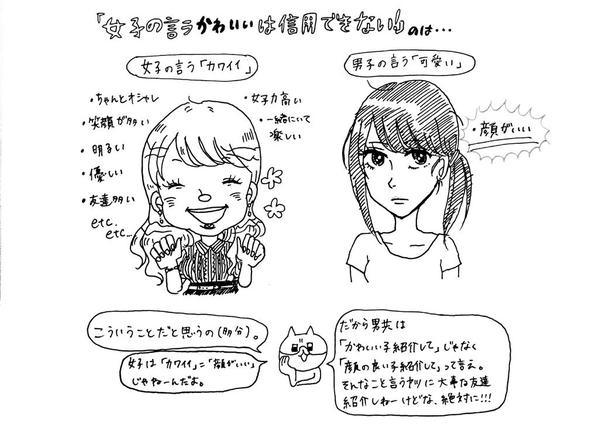 「女子の言うかわいいは信用できない！」のは…
女子の言う「カワイイ」
・ちゃんとオシャレ
・笑顔が多い
・明るい
・優しい
・友達多い
etc.
etc…
・女子力高い
・一緒にいて
楽しい
男子の言う「可愛い」
・顔がいい
こういうことだと思うの(多分)。
女子は「カワイイ」=「顔がいい」
じゃねーんだよ。
だから男共は
「かわいい子紹介して」じゃなく
「顔の良い子紹介して」って言え。
そんなこと言うヤツに大事な友達
紹介しねーけどな、絶対に!!!